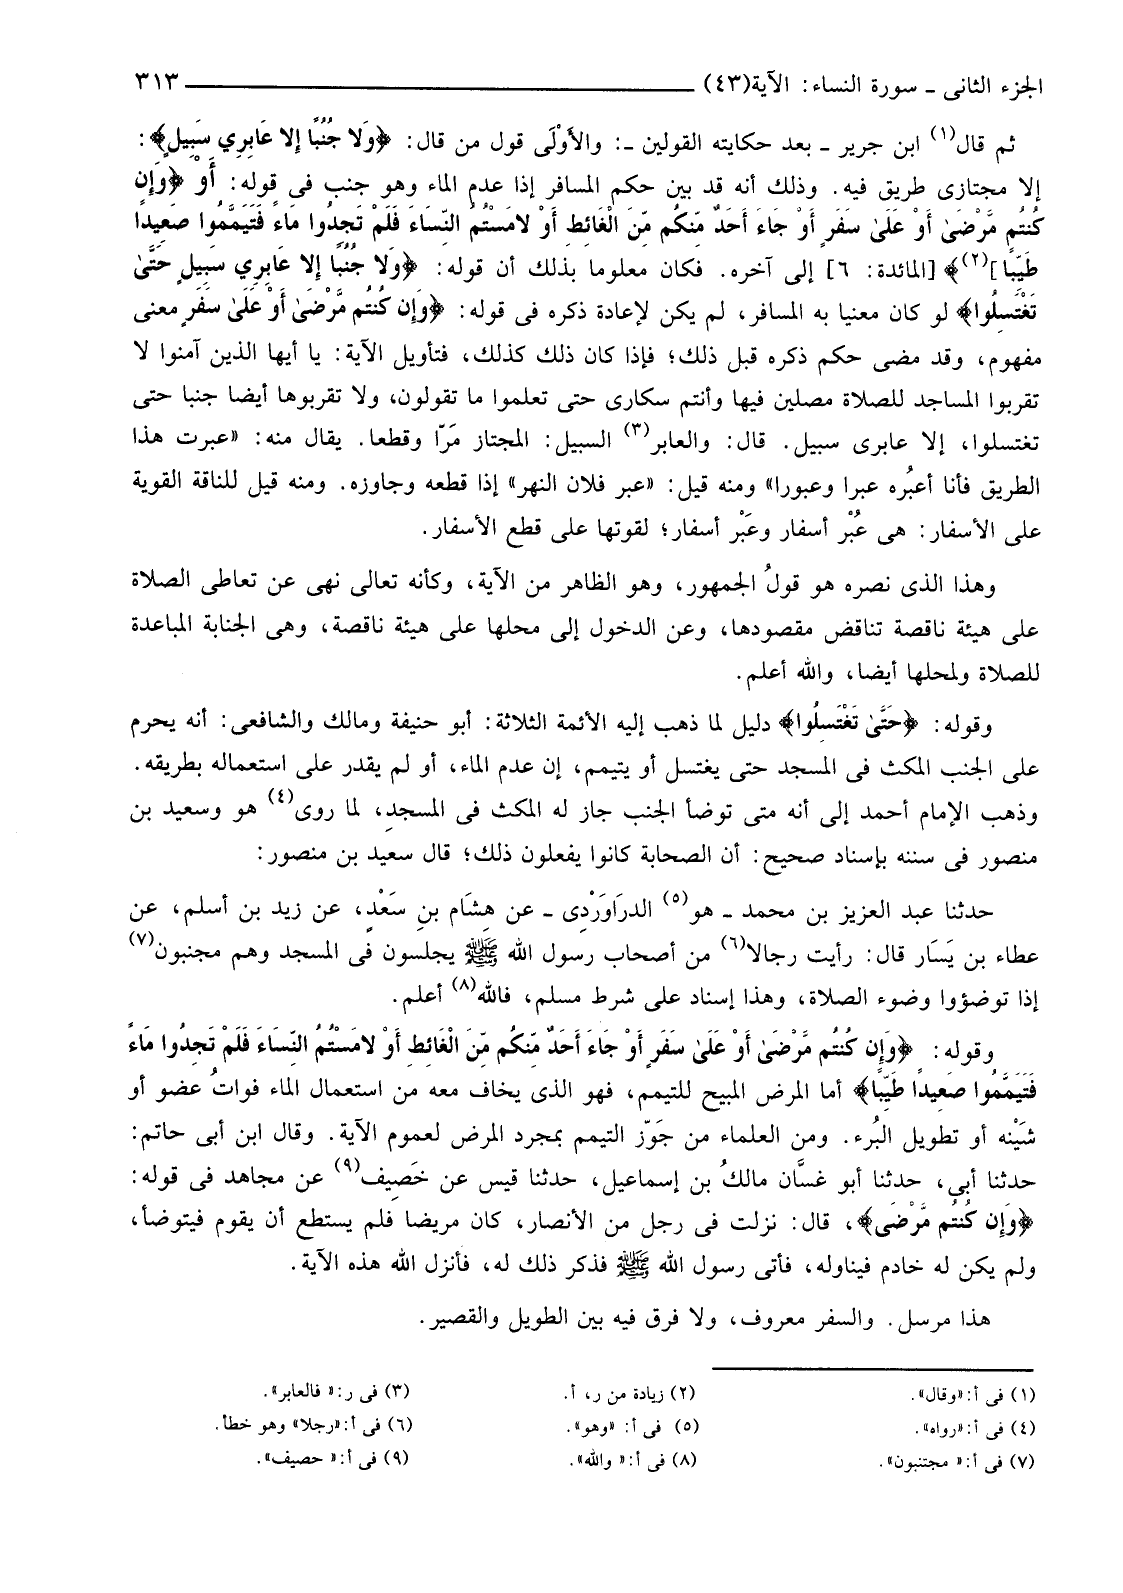 الجزء الثانى ـ سورة النساء: الآية(٤٣) ــــــــــــ ٣١٣
ثم قال(١) ابن جرير ـ بعد حكايته القولين ـ: والأَوْلَى قول من قال: ﴿وَلا جُنُبًا إِلا عَابِرِي سَبِيلٍ﴾:
إلا مجتازى طريق فيه. وذلك أنه قد بين حكم المسافر إذا عدم الماء وهو جنب فى قوله: أَوْ ﴿وَإِن
كُنتُم مَّرْضَىٰ أَوْ عَلَىٰ سَفَرٍ أَوْ جَاءَ أَحَدٌ مِّنكُم مِّنَ الْغَائِطِ أَوْ لامَسْتُمُ النِّسَاءَ فَلَمْ تَجِدُوا مَاءً فَتَيَمَّمُوا صَعِيدًا
طَيِّبًا](٢)﴾ [المائدة: ٦] إلى آخره. فكان معلوما بذلك أن قوله: ﴿وَلا جُنُبًا إِلا عَابِرِي سَبِيلٍ حَتَّىٰ
تَغْتَسِلُوا﴾ لو كان معنيا به المسافر، لم يكن لإعادة ذكره فى قوله: ﴿وَإِن كُنتُم مَّرْضَىٰ أَوْ عَلَىٰ سَفَرٍ﴾ معنى
مفهوم، وقد مضى حكم ذكره قبل ذلك؛ فإذا كان ذلك كذلك، فتأويل الآية: يا أيها الذين آمنوا لا
تقربوا المساجد للصلاة مصلين فيها وأنتم سكارى حتى تعلموا ما تقولون، ولا تقربوها أيضا جنبا حتى
تغتسلوا، إلا عابرى سبيل. قال: والعابر(٣) السبيل: المجتاز مَرّا وقطعا. يقال منه: «عبرت هذا
الطريق فأنا أعبُره عبرا وعبورا» ومنه قيل: «عبر فلان النهر» إذا قطعه وجاوزه. ومنه قيل للناقة القوية
على الأسفار: هى عُبْر أسفار وعَبْر أسفار؛ لقوتها على قطع الأسفار.
وهذا الذى نصره هو قولُ الجمهور، وهو الظاهر من الآية، وكأنه تعالى نهى عن تعاطى الصلاة
على هيئة ناقصة تناقض مقصودها، وعن الدخول إلى محلها على هيئة ناقصة، وهى الجنابة المباعدة
للصلاة ولمحلها أيضا، والله أعلم.
وقوله: ﴿حَتَّىٰ تَغْتَسِلُوا﴾ دليل لما ذهب إليه الأئمة الثلاثة: أبو حنيفة ومالك والشافعى: أنه يحرم
على الجنب المكث فى المسجد حتى يغتسل أو يتيمم، إن عدم الماء، أو لم يقدر على استعماله بطريقه.
وذهب الإمام أحمد إلى أنه متى توضأ الجنب جاز له المكث فى المسجدِ، لما روى(٤) هو وسعيد بن
منصور فى سننه بإسناد صحيح: أن الصحابة كانوا يفعلون ذلك؛ قال سعيد بن منصور:
حدثنا عبد العزيز بن محمد ـ هو(٥) الدرَاوَرْدِى ـ عن هِشَام بنِ سَعْدٍ، عن زيد بن أسلم، عن
عطاء بن يَسَار قال: رأيت رجالا(٦) من أصحاب رسول الله ﷺ يجلسون فى المسجد وهم مجنبون(٧)
إذا توضؤوا وضوء الصلاة، وهذا إسناد على شرط مسلم، فالله(٨) أعلم.
وقوله: ﴿وَإِن كُنتُم مَّرْضَىٰ أَوْ عَلَىٰ سَفَرٍ أَوْ جَاءَ أَحَدٌ مِّنكُم مِّنَ الْغَائِطِ أَوْ لامَسْتُمُ النِّسَاءَ فَلَمْ تَجِدُوا مَاءً
فَتَيَمَّمُوا صَعِيدًا طَيِّبًا﴾ أما المرض المبيح للتيمم، فهو الذى يخاف معه من استعمال الماء فواتُ عضو أو
شَيْنه أو تطويل البُرء. ومن العلماء من جَوّز التيمم بمجرد المرض لعموم الآية. وقال ابن أبى حاتم:
حدثنا أبى، حدثنا أبو غسَّان مالكُ بن إسماعيل، حدثنا قيس عن خَصِيف(٩) عن مجاهد فى قوله:
﴿وَإِن كُنتُم مَّرْضَى﴾، قال: نزلت فى رجل من الأنصار، كان مريضا فلم يستطع أن يقوم فيتوضأ،
ولم يكن له خادم فيناوله، فأتى رسول الله ﷺ فذكر ذلك له، فأنزل الله هذه الآية.
هذا مرسل. والسفر معروف، ولا فرق فيه بين الطويل والقصير.
(١) فى أ: «وقال». (٢) زيادة من ر، أ. (٣) فى ر: « فالعابر».
(٤) فى أ: «رواه». (٥) فى أ: «وهو». (٦) فى أ: «رجلا» وهو خطأ.
(٧) فى أ: « مجتنبون». (٨) فى أ: « والله». (٩) فى أ: « حصيف».